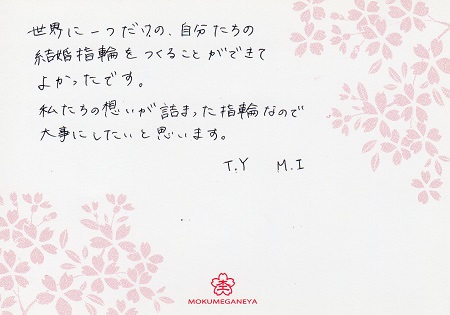 世界に一つだけの、自分たちの
結婚指輪をつくることができて
よかったです。
私たちの想いが詰まった指輪なので
大事にしたいと思います。
T.Y M.I
MOKUMEGANEYA